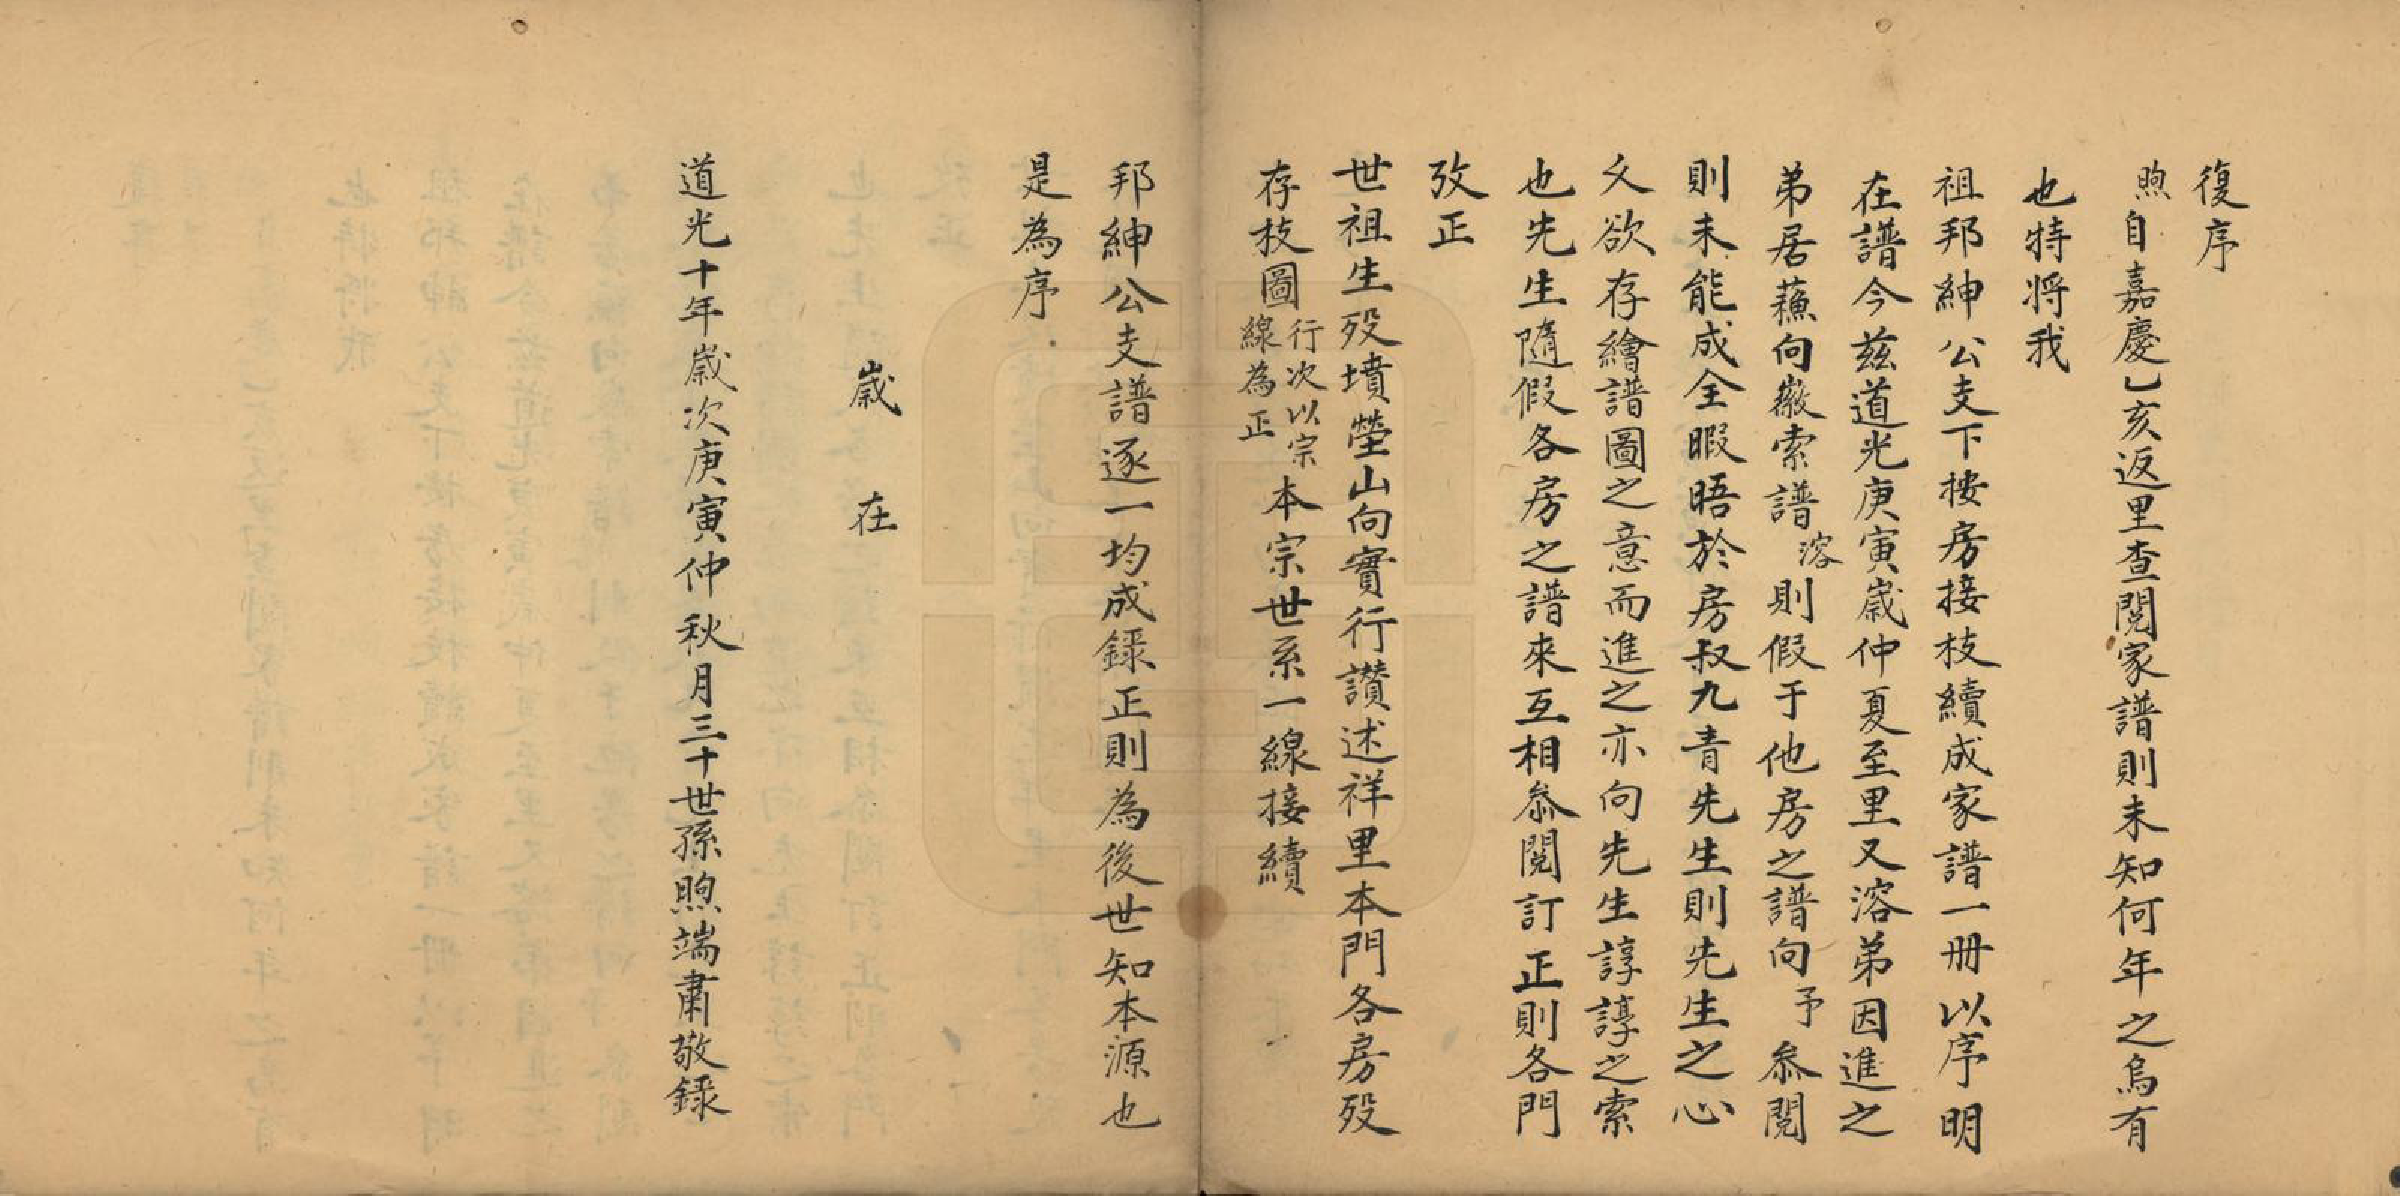 復序
煦自嘉慶乙亥返里查閱家譜則未知何年之烏有
也特将我
祖邦紳公支下接房接枝續成家譜一冊以序明
在譜今兹道光庚寅嵗仲夏至里又溶弟因進之
弟居蘓向徽索譜溶則假于他房之譜向予叅閱
則未能成全暇晤於房叔九青先生則先生之心
乆欲存繪譜圖之意而進之亦向先生諄諄之索
也先生隨假各房之譜來互相叅閱訂正則各門
攷正
世祖生殁墳塋山向實行讃述祥里本門各房殁
存枝圖行次以宗線為正本宗世系一線接續
邦紳公支譜逐一均成錄正則為後世知本源也
是為序
嵗在
道光十年嵗次庚寅仲秋月三十世孫煦端肅敬錄